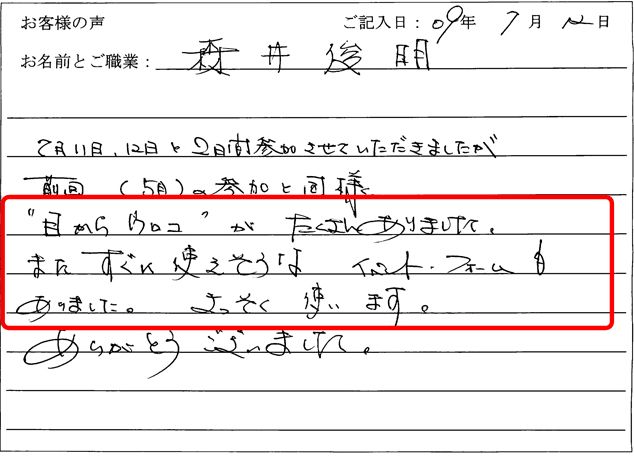 お客様の声 ご記入日：09年 7月 12日
お名前とご職業： 森井 俊明
7月11日、12日と2日間参加させていただきましたが
前回（5月）の参加と同様、
"目からウロコ"が たくさんありました。
また すぐに使えそうな イベント・フォームも
ありました。 さっそく 使います。
ありがとうございました。